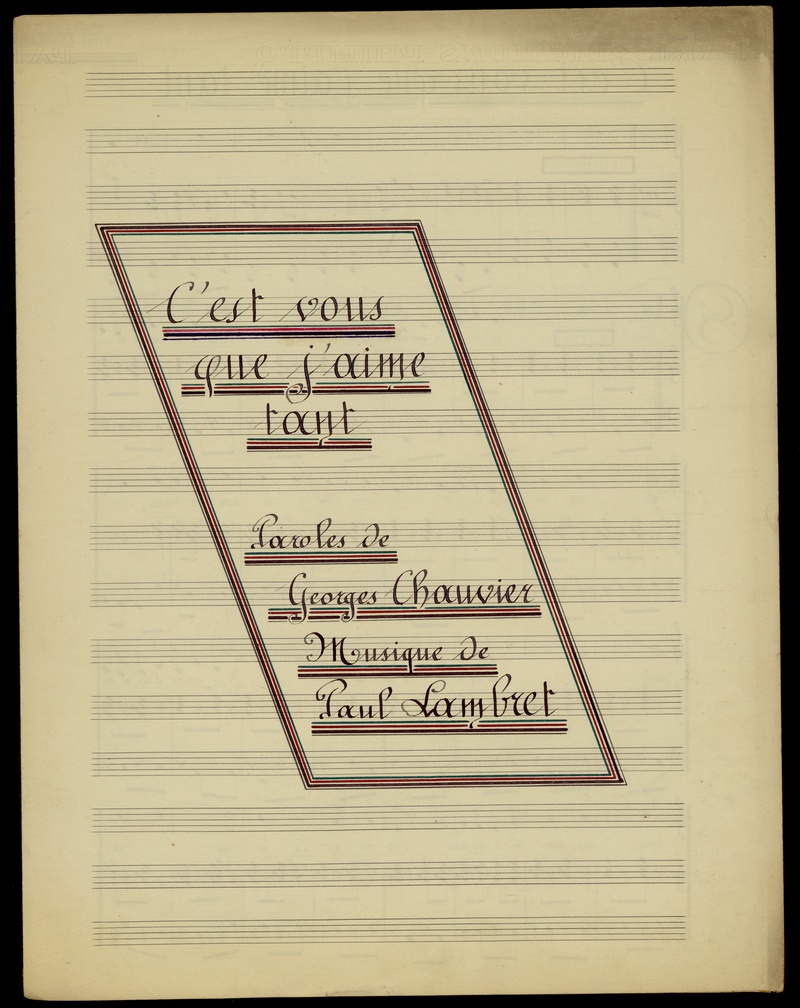 C'est vous
que j'aime
tant
Paroles de
Georges Chauvier
Musique de
Paul Lambret